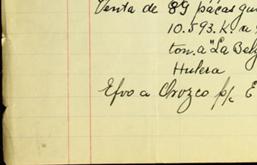 Venta de 89 pacas gu
10.593.K. n
ton. a "La Belg
Hulera
Efvo a Orozco p/c E